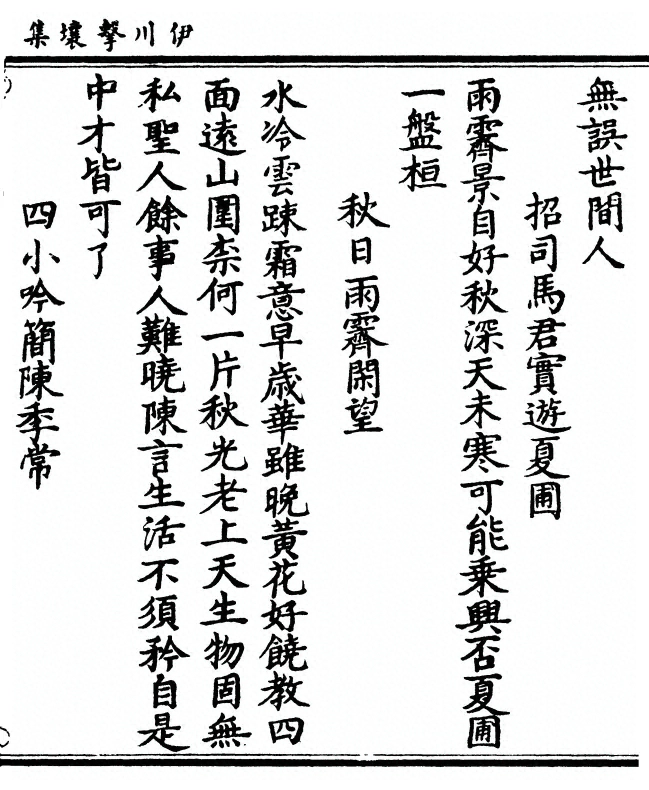 伊川擊壤集
無誤世間人
招司馬君實遊夏圃
雨霽景自好秋深天未寒可能乗興否夏圃
一盤桓
秋日雨霽閑望
水冷雲踈霜意早歲華雖晚黃花好饒教四
面遠山圍柰何一片秋光老上天生物固無
私聖人餘事人難曉陳言生活不須矜自是
中才皆可了
四小吟簡陳季常